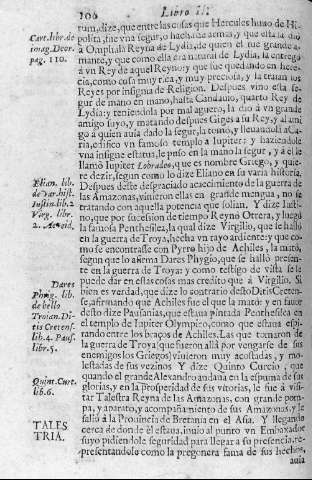 106 Libro II.
rum, dize, que entre las cosas que Hercules huuo de Hi-
polita, fue vna segur, o hacha de armas, y que ella la dio
à Omphala Reyna de Lydia, de quien el fue grande a-
mante, y que como ella era natural de Lydia, la entregò
à vn Rey de aquel Reyno: y que fue quedando en heren-
cia, como cosa muy rica, y muy preciosa, y la traian los
Reyes por insignia de Religion. Despues vino esta se-
gur de mano en mano, hasta Candaulo, quarto Rey de
Lydia: y teniendola por mal aguero, la dio à vn grande
amigo suyo, y matando despues Giges a su Rey, y al ami
go à quien auia dado la segur, la tomò, y lleuandola a Ca-
ria, edificò vn famoso templo a Iupiter: y haziendole
vna insigne estatua, le puso en la mano la segur, y à el le
llamò Iupiter Labradeo, que es nombre Griego, y quie-
re dezir, segun como lo dize Eliano en su varia historia.
Despues deste desgraciado acaecimiento de la guerra de
las Amazonas, vinieron ellas en grande mengua, no se
tratando con aquella potencia que solian. Y dize Iusti-
no, que por sucession de tiempo Reynò Otrera, y luego
la famosa Penthesilea, la qual dize Virgilio, que se hallò
en la guerra de Troya, hecha vn rayo ardiente: y que co-
mo se encontrasse con Pyrro hijo de Achiles, la matò,
segun que lo afirma Dares Phygio, que se hallò presen-
te en la guerra de Troya: y como testigo de vista se le
puede dar en estas cosas mas credito que à Virgilio. Si
bien es verdad, que dize lo contrario desto Ditis Creten-
se, afirmando que Achiles fue el que la matò: y en fauor
desto dize Pausanias, que estaua pintada Penthesilea en
el templo de Iupiter Olympico, como que estaua espi-
rando entre los braços de Achiles. Las que tornaron de
la guerra de Troya (que fueron allà por vengarse de sus
enemigos los Griegos) vinieron muy acostadas, y mo-
lestadas de sus vezinos Y dize Quinto Curcio, que
quando el grande Alexandro andaua en la espuma de sus
glorias, y en la prosperidad de sus vitorias, le fue à visi-
tar Talestra Reyna de las Amazonas, con grande pom-
pa, y aparato, y acompañamiento de sus Amazonas, y le
saliò a la Prouincia de Bretania en el Asia. Y llegando
cerca de donde el estaua, inuio al punto vn Embaxador
suyo pidiendole seguridad para llegar a su presencia, re-
presentandole como la pregonera fama de sus hechos,
auia
Cart. libr. de
imag. Deor.
pag. 110.
Elian. lib.
de var. hist.
Iustin. lib. 2
Virg. libr.
2. Aeneid.
Dares
Phrig. lib.
de bello
Troian. Di-
tis Cretens.
lib. 4. Paus.
libr. 5.
Quint. Curt.
lib. 6.
TALES
TRIA.